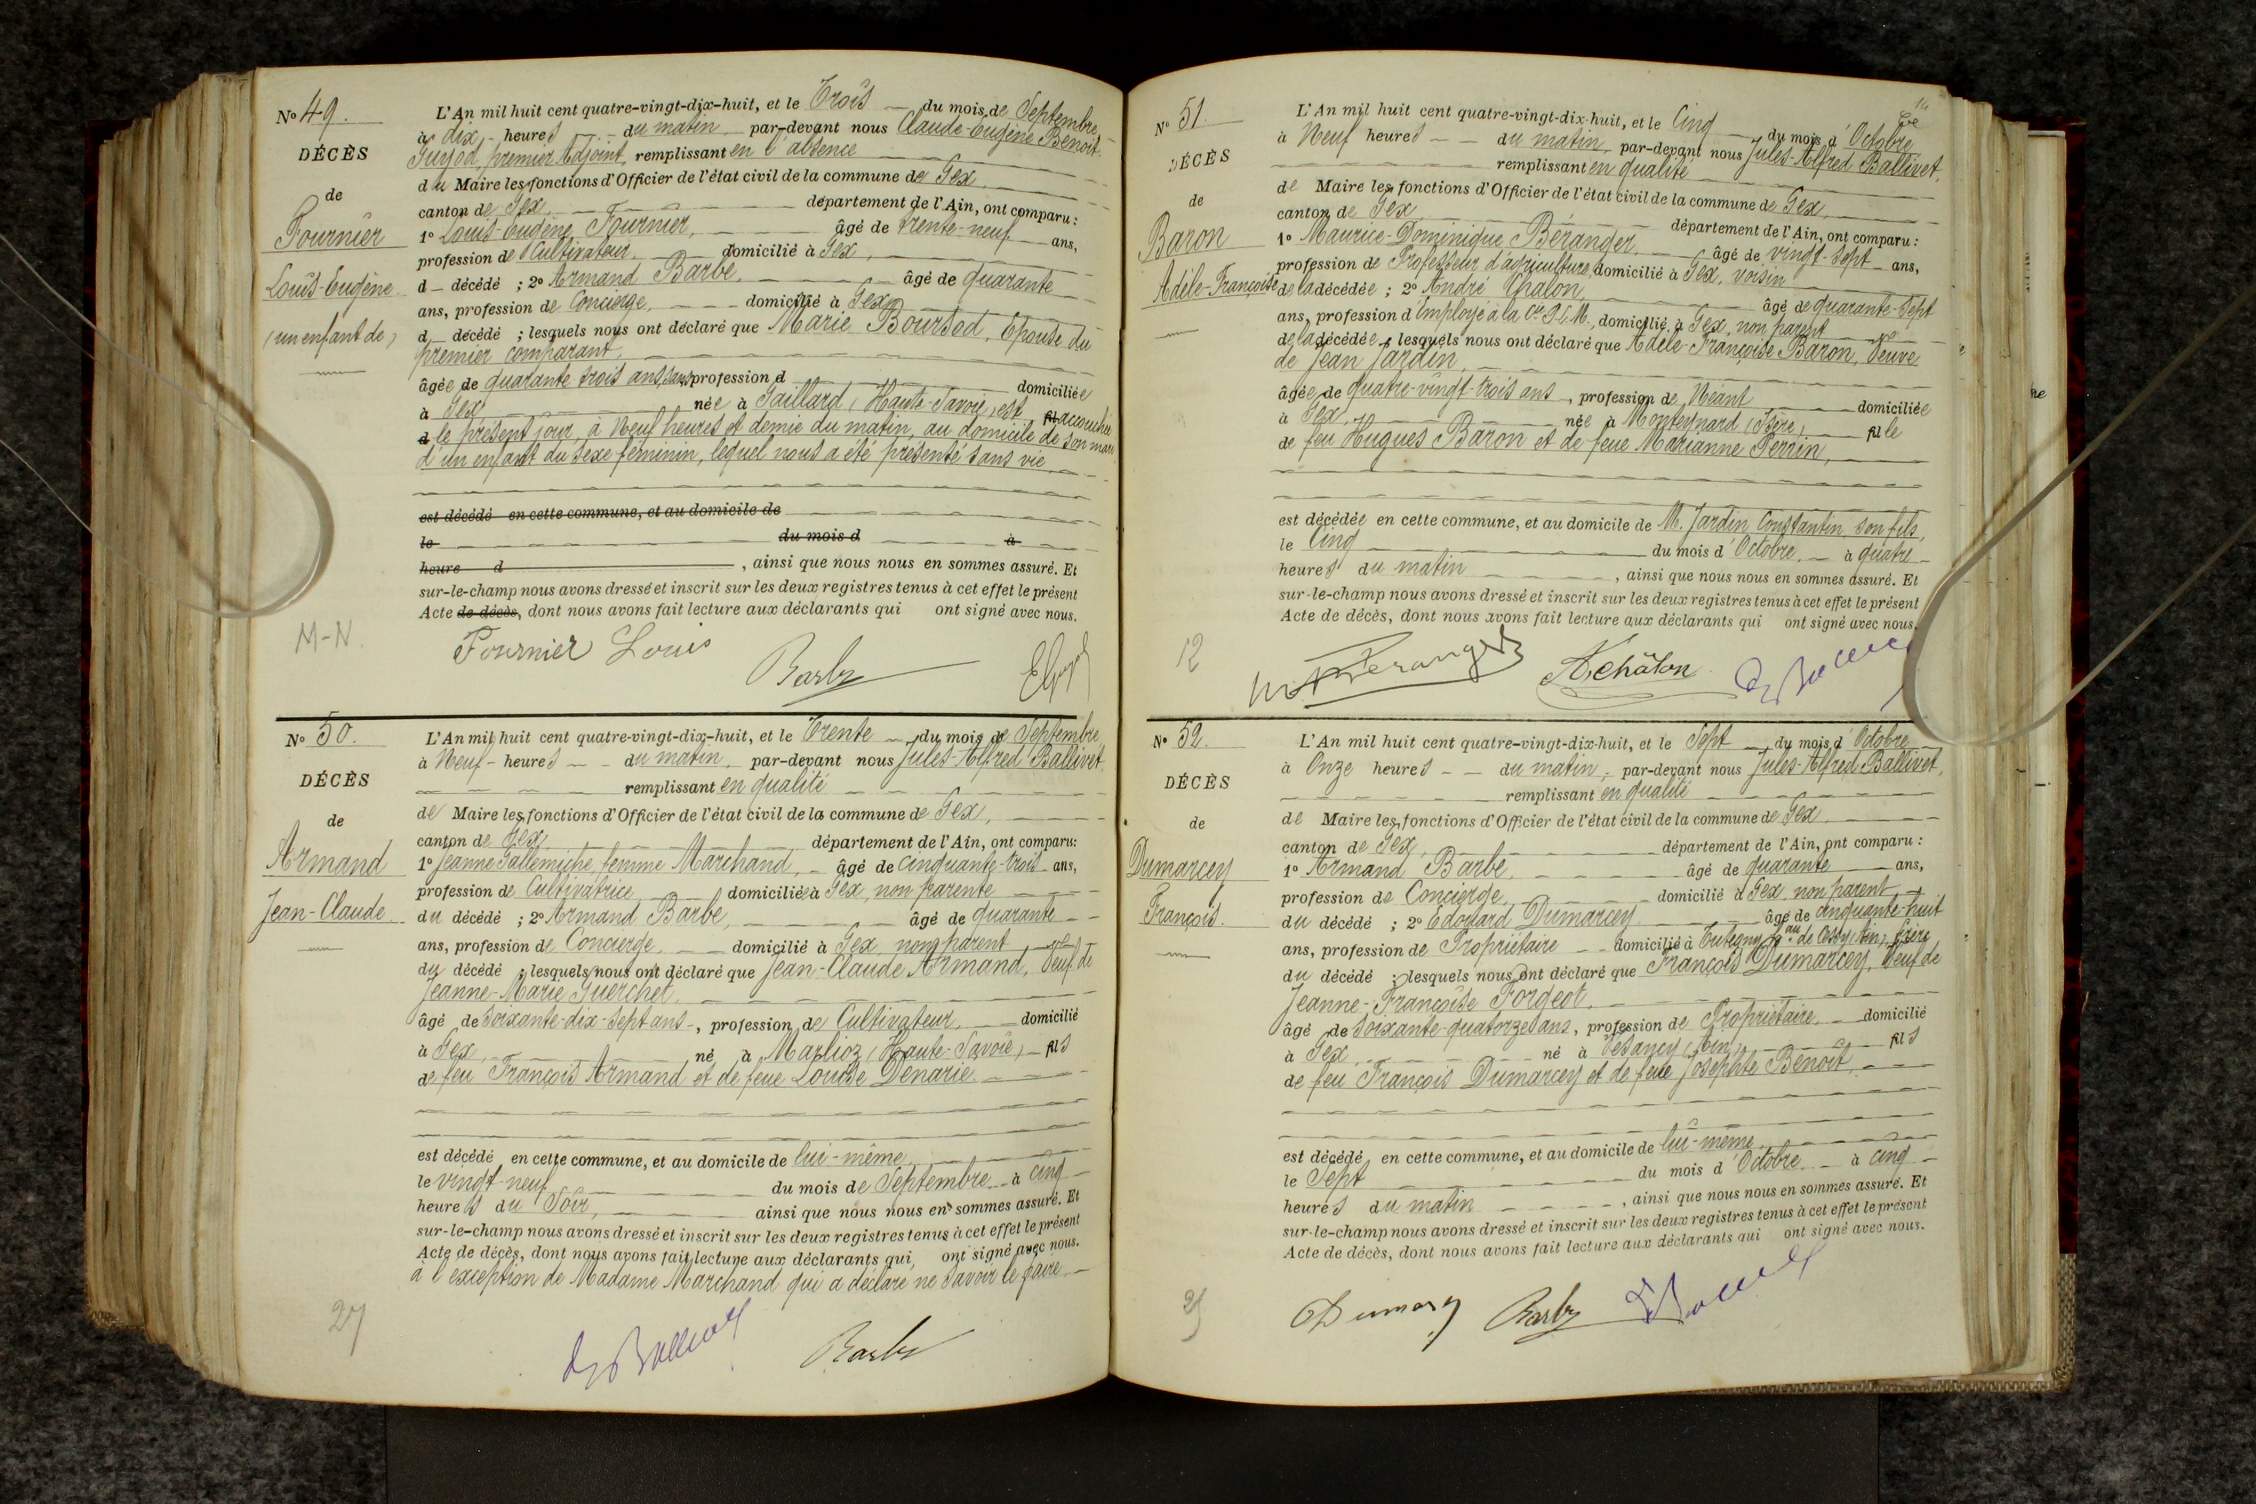 No 49.
DÉCÈS
de
Fournier
Louis-Eugène
(un enfant de)
L'An mil huit cent quatre-vingt-dix-huit, et le Trois du mois de Septembre
à dix heures du matin par-devant nous Claude-Eugène-Benoit
Guyod, premier Adjoint, remplissant en l'absence
du Maire les fonctions d'Officier de l'état civil de la commune de Gex
canton de Gex département de l'Ain, ont comparu :
1o Louis-Eugène Fournier, âgé de trente-neuf ans,
profession de Cultivateur domicilié à Gex,
d décédé ; 2o Armand Barbe, âgé de quarante
ans, profession de Concierge, domicilié à Gex
d décédé ; lesquels nous ont déclaré que Marie Boursod, Epouse du
premier comparant,
âgée de quarante trois ans, sans profession d domiciliée
à Gex née à Gaillard (Haute-Savoie), est fil accouchée
d le présent jour, à Neuf heures et demie du matin, au domicile de son mari
d'un enfant du sexe féminin, lequel nous a été présenté sans vie
est décédé en cette commune, et au domicile de
le du mois d à
heure d , ainsi que nous nous en sommes assuré. Et
sur-le-champ nous avons dressé et inscrit sur les deux registres tenus à cet effet le présent
Acte de décès, dont nous avons fait lecture aux déclarants qui ont signé avec nous.
M-N.
Fournier Louis
Barbe
No 50.
DÉCÈS
de
Armand
Jean-Claude
L'An mil huit cent quatre-vingt-dix-huit, et le Trente du mois de Septembre
à Neuf heures du matin, par-devant nous Jules-Alfred Ballivet
remplissant en qualité
de Maire les fonctions d'Officier de l'état civil de la commune de Gex,
canton de Gex département de l'Ain, ont comparu :
1o Jeanne Gallemiche, femme Marchand, âgé de cinquante-trois ans,
profession de Cultivatrice domiciliée à Gex, non parente
du décédé ; 2o Armand Barbe, âgé de quarante
ans, profession de Concierge, domicilié à Gex non parent
du décédé ; lesquels nous ont déclaré que Jean-Claude Armand, Veuf de
Jeanne-Marie Guerchet,
âgé de Soixante-dix-Sept ans, profession de Cultivateur, domicilié
à Gex, né à Marlioz (Haute-Savoie), fils
de feu François Armand et de feue Louise Dénarie
est décédé en cette commune, et au domicile de lui-même
le vingt-neuf du mois de Septembre à Cinq
heures du Soir, ainsi que nous nous en sommes assuré. Et
sur-le-champ nous avons dressé et inscrit sur les deux registres tenus à cet effet le présent
Acte de décès, dont nous avons fait lecture aux déclarants qui, ont signé avec nous.
à l'exception de Madame Marchand qui a déclaré ne savoir le faire
27
Ballivet
Barbe
14
No 51.
DÉCÈS
de
Baron
Adèle-Françoise
L'An mil huit cent quatre-vingt-dix-huit, et le Cinq du mois d'Octobre
à Neuf heures du matin, par-devant nous Jules-Alfred Ballivet,
remplissant en qualité
de Maire les fonctions d'Officier de l'état civil de la commune de Gex,
canton de Gex département de l'Ain, ont comparu :
1o Maurice-Dominique Béranger, âgé de vingt-Sept ans,
profession de Professeur d'agriculture, domicilié à Gex, voisin
de la décédée ; 2o André Chalon, âgé de quarante-Sept
ans, profession d'Employé à la Cie P.L.M., domicilié à Gex, non parent
de la décédée ; lesquels nous ont déclaré que Adèle-Françoise Baron, Veuve
de Jean Jardin,
âgée de quatre-vingt-trois ans, profession de Néant domiciliée
à Gex, née à Monteynard (Isère), fille
de feu Hugues Baron et de feue Marianne Perrin,
est décédée en cette commune, et au domicile de M. Jardin Constantin, son fils,
le Cinq du mois d'Octobre à quatre
heures du matin , ainsi que nous nous en sommes assuré. Et
sur-le-champ nous avons dressé et inscrit sur les deux registres tenus à cet effet le présent
Acte de décès, dont nous avons fait lecture aux déclarants qui ont signé avec nous.
12
Béranger
A Châlon
No 52.
DÉCÈS
de
Dumarcey
François.
L'An mil huit cent quatre-vingt-dix-huit, et le Sept du mois d'Octobre
à Onze heures du matin, par-devant nous Jules-Alfred Ballivet,
remplissant en qualité
de Maire les fonctions d'Officier de l'état civil de la commune de Gex
canton de Gex, département de l'Ain, ont comparu :
1o Armand Barbe, âgé de quarante ans,
profession de Concierge, domicilié à Gex, non parent
du décédé ; 2o Edouard Dumarcey, âgé de cinquante-huit
ans, profession de Propriétaire domicilié à Tutegny, hau de Cessy (Ain), frère
du décédé ; lesquels nous ont déclaré que François Dumarcey, Veuf de
Jeanne-Françoise Forgeot,
âgé de Soixante-quatorze ans, profession de Propriétaire, domicilié
à Gex né à Vesancy (Ain), fils
de feu François Dumarcey et de feue Josephte Benoit,
est décédé en cette commune, et au domicile de lui-même
le Sept du mois d'Octobre à cinq
heures du matin , ainsi que nous nous en sommes assuré. Et
sur-le-champ nous avons dressé et inscrit sur les deux registres tenus à cet effet le présent
Acte de décès, dont nous avons fait lecture aux déclarants qui ont signé avec nous.
Barbe